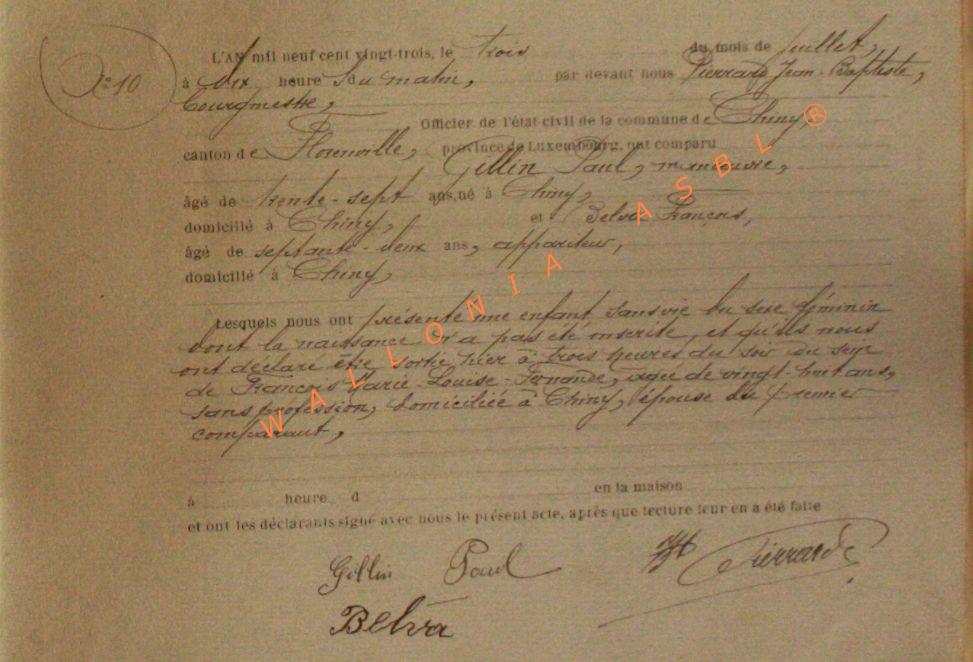 N° 10
L'AN mil neuf cent vingt-trois, le trois du mois de juillet,
à dix heure du matin, par devant nous Pierrard Jean-Baptiste,
bourgmestre,
Officier de l'état civil de la commune de Chiny,
canton de Florenville, province de Luxembourg, ont comparu
Gillin Paul, manœuvre,
âgé de trente-sept ans, né à Chiny,
domicilié à Chiny, et Belva François,
âgé de septante-deux ans, appariteur,
domicilié à Chiny,
Lesquels nous ont présenté une enfant sans vie du sexe féminin
dont la naissance n'a pas été inscrite, et qu'ils nous
ont déclaré être sortie hier à trois heures du soir du sein
de François Marie-Louise-Fernande, agée de vingt-huit ans,
sans profession, domiciliée à Chiny, épouse du premier
comparant,
à heure d en la maison
et ont les déclarants signé avec nous le présent acte, après que lecture leur en a été faite
Gillin Paul Pierrard
Belva
WALLONIA ASBL ®